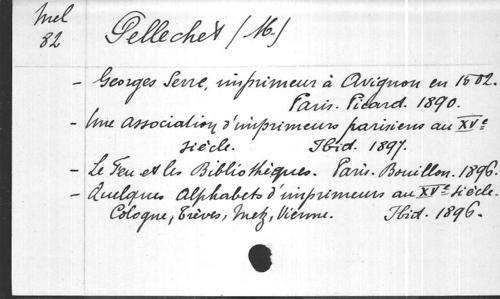 Mel
82
Pellechet (M.)
- Georges Serre, imprimeur à Avignon en 1502.
Paris. Picard. 1890.
- Une association d'imprimeurs parisiens au XVe
siècle. Ibid. 1897.
- Le Feu et les Bibliothèques. Paris. Bouillon. 1896.
- Quelques Alphabets d'imprimeurs au XVe siècle.
Cologne, Trèves, Metz, Vienne. Ibid. 1896.